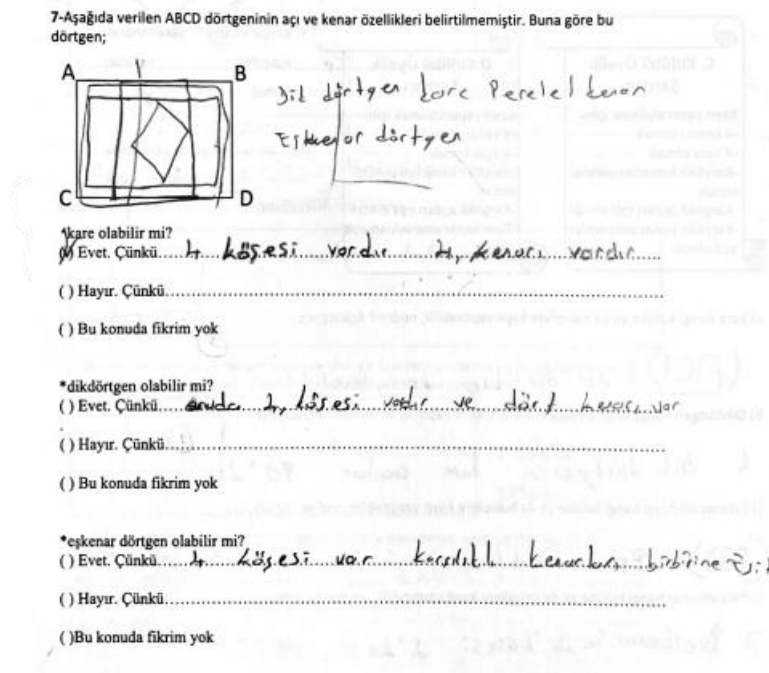 7-Aşağıda verilen ABCD dörtgeninin açı ve kenar özellikleri belirtilmemiştir. Buna göre bu
dörtgen;
A B
Dik dörtgen kare Perelel kenar
Eşkenar dörtgen
C D
*kare olabilir mi?
(X) Evet. Çünkü..... 4 köşesi vardır 4 kenarı vardır.....
( ) Hayır. Çünkü.....
( ) Bu konuda fikrim yok
*dikdörtgen olabilir mi?
( ) Evet. Çünkü..... 4 köşesi vardır ve dört kenarı var
( ) Hayır. Çünkü.....
( ) Bu konuda fikrim yok
*eşkenar dörtgen olabilir mi?
( ) Evet. Çünkü..... 4 köşesi var karşılıklı kenarları birbirine eşit
( ) Hayır. Çünkü.....
( )Bu konuda fikrim yok